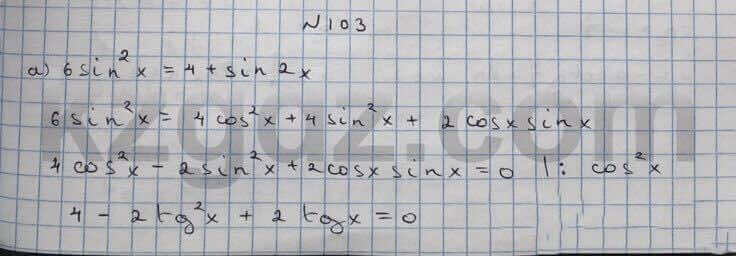 N103
а) 6 sin²x = 4 + sin 2x
6 sin²x = 4 cos²x + 4 sin²x + 2 cosx sinx
4 cos²x - 2 sin²x + 2 cosx sinx = 0 |: cos²x
4 - 2 tg²x + 2 tgx = 0
kzgdz.com